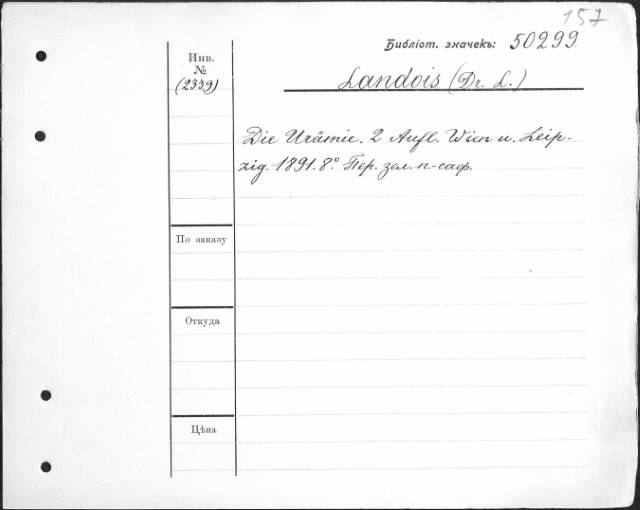 157
Библіот. значекъ: 50299.
Инв.
№
(2339)
Landois (Dr. L.)
Die Urämie. 2 Aufl. Wien u. Leip-
zig. 1891. 8°. Пер. зел. п-саф.
По заказу
Откуда
Цѣна